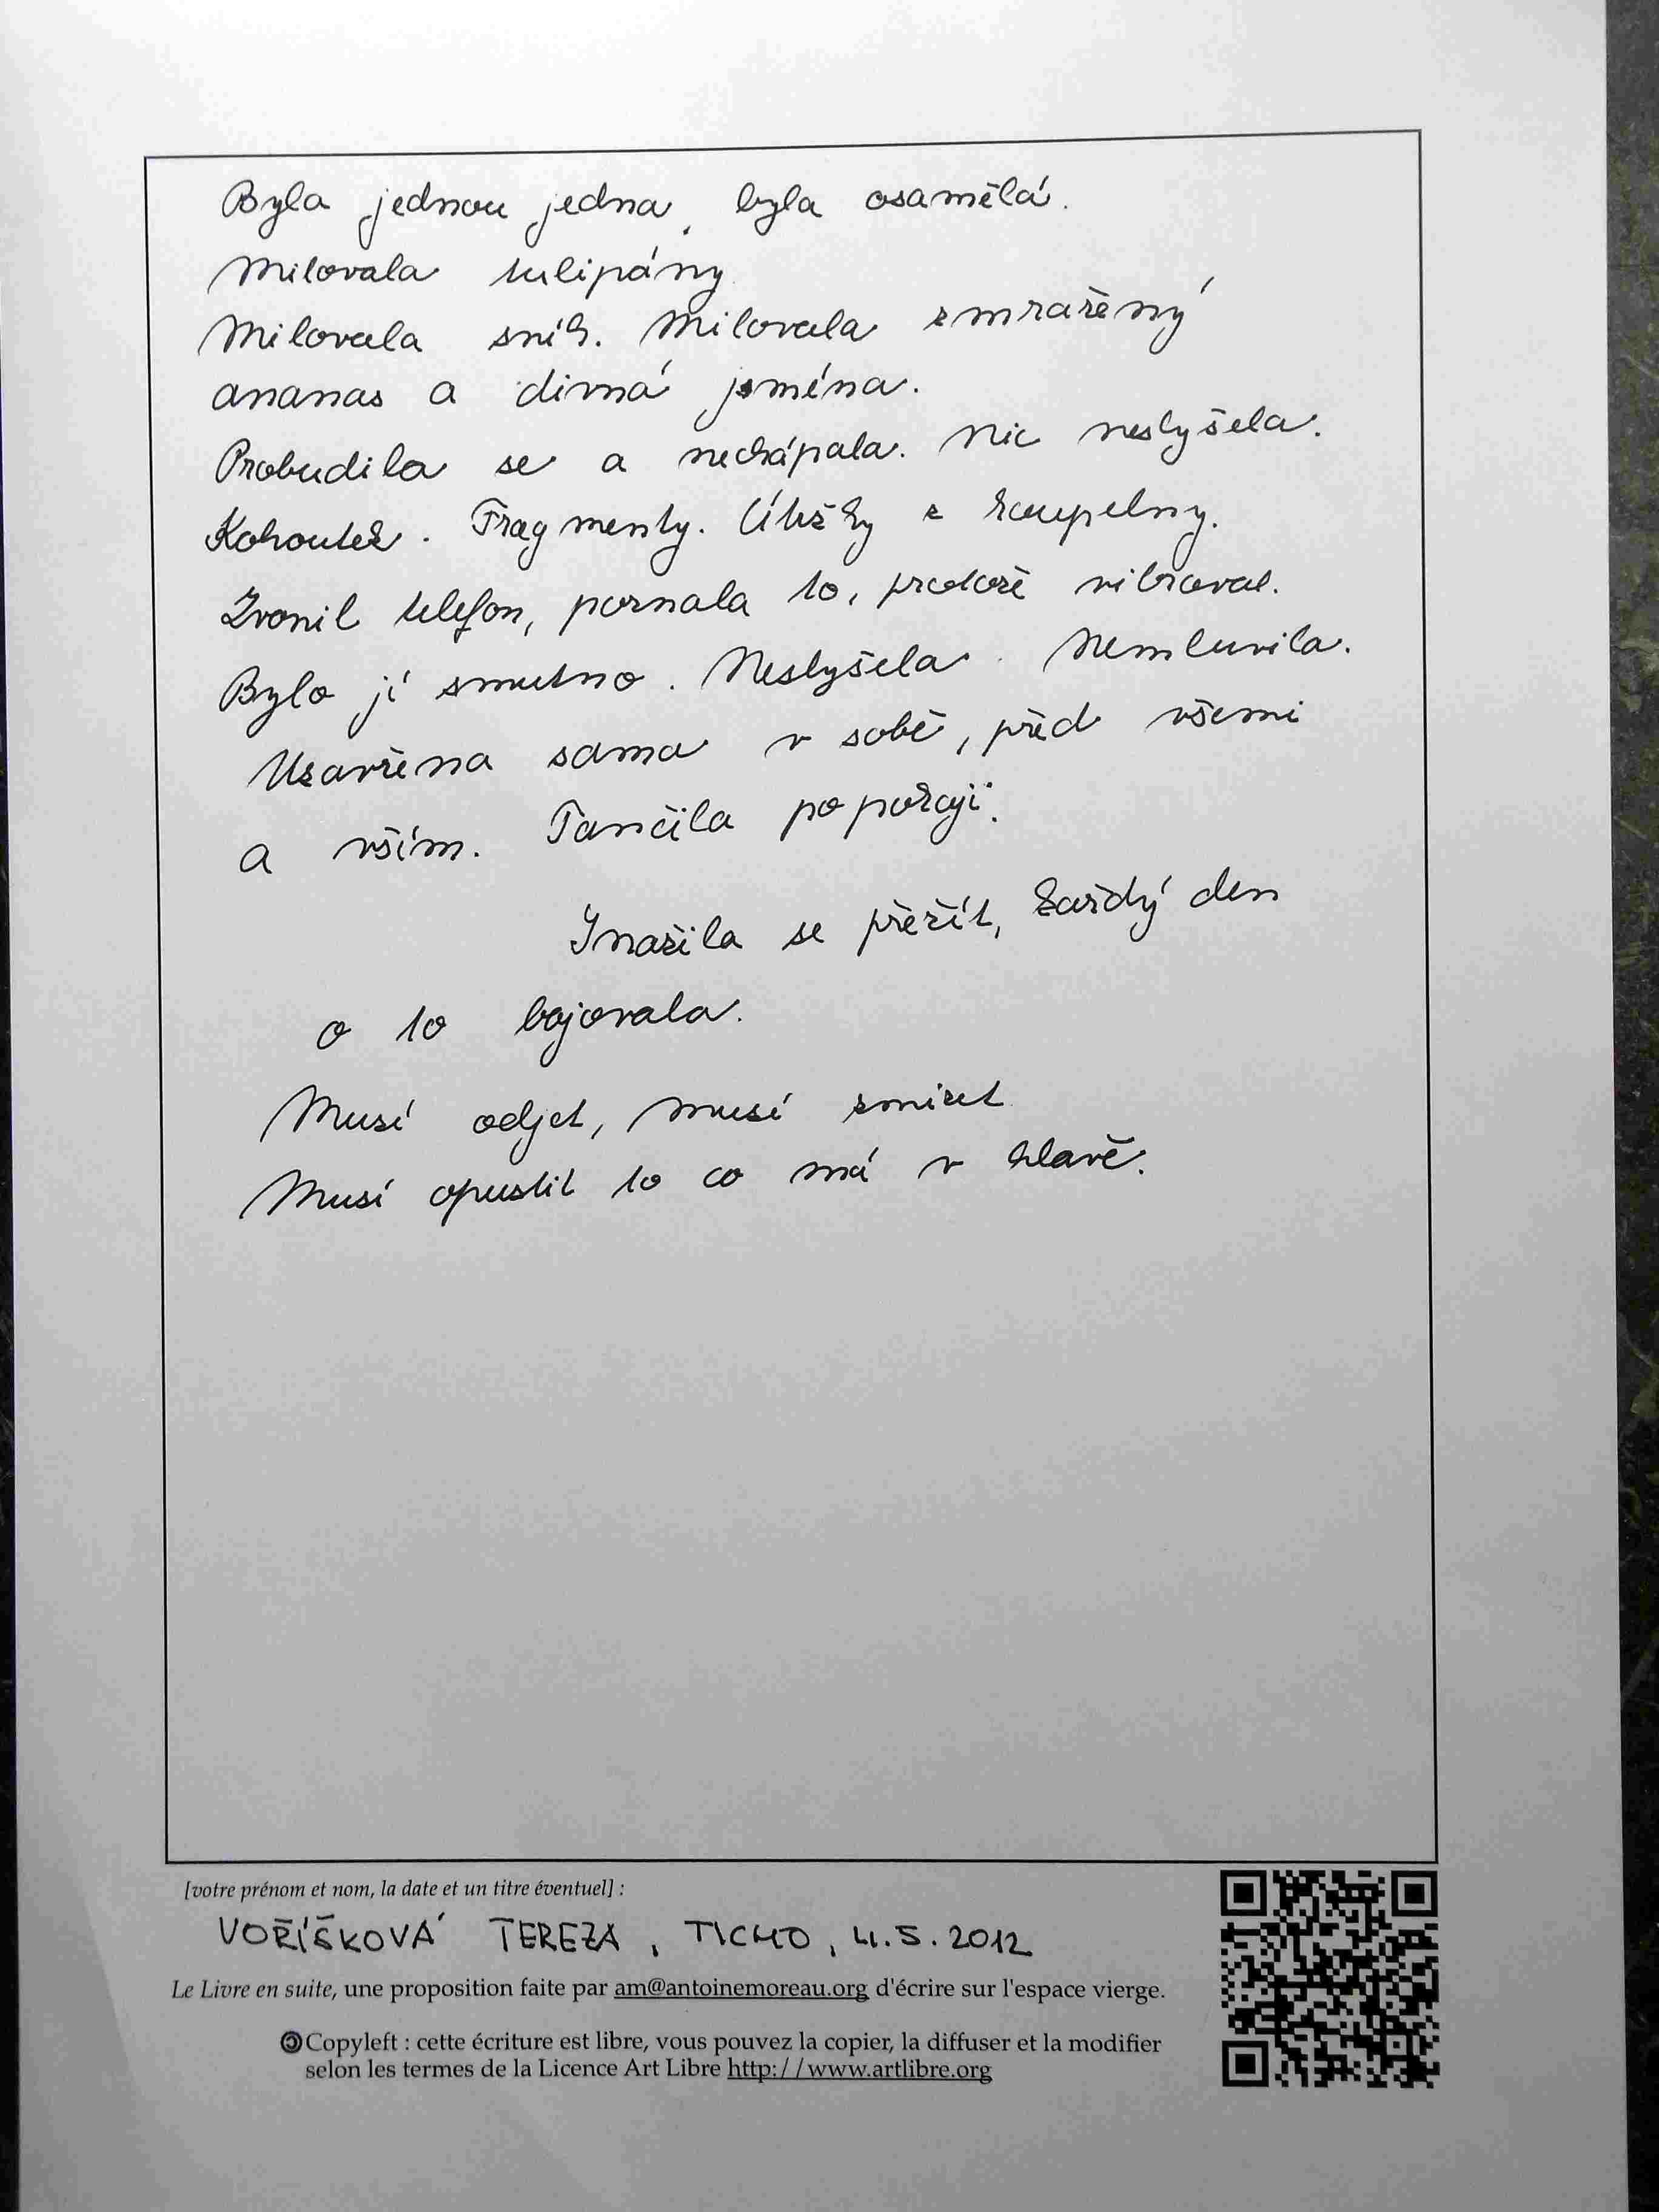 Byla jednou jedna, byla osamělá.
Milovala tulipány
Milovala sníh. Milovala zmražený
ananas a divná jména.
Probudila se a nechápala. Nic neslyšela.
Kohoutek. Fragmenty. Útržky z koupelny.
Zvonil telefon, poznala to, protože vibroval.
Bylo jí smutno. Neslyšela. Nemluvila.
Uzavřena sama v sobě, před všemi
a vším. Tančila po pokoji.
Snažila se přežít, každý den
o to bojovala.
Musí odjet, musí zmizet
Musí opustit to co má v hlavě.
[votre prénom et nom, la date et un titre éventuel] :
VOŘÍŠKOVÁ TEREZA, TICHO, 4.5.2012
Le Livre en suite, une proposition faite par am@antoinemoreau.org d'écrire sur l'espace vierge.
Copyleft : cette écriture est libre, vous pouvez la copier, la diffuser et la modifier
selon les termes de la Licence Art Libre http://www.artlibre.org